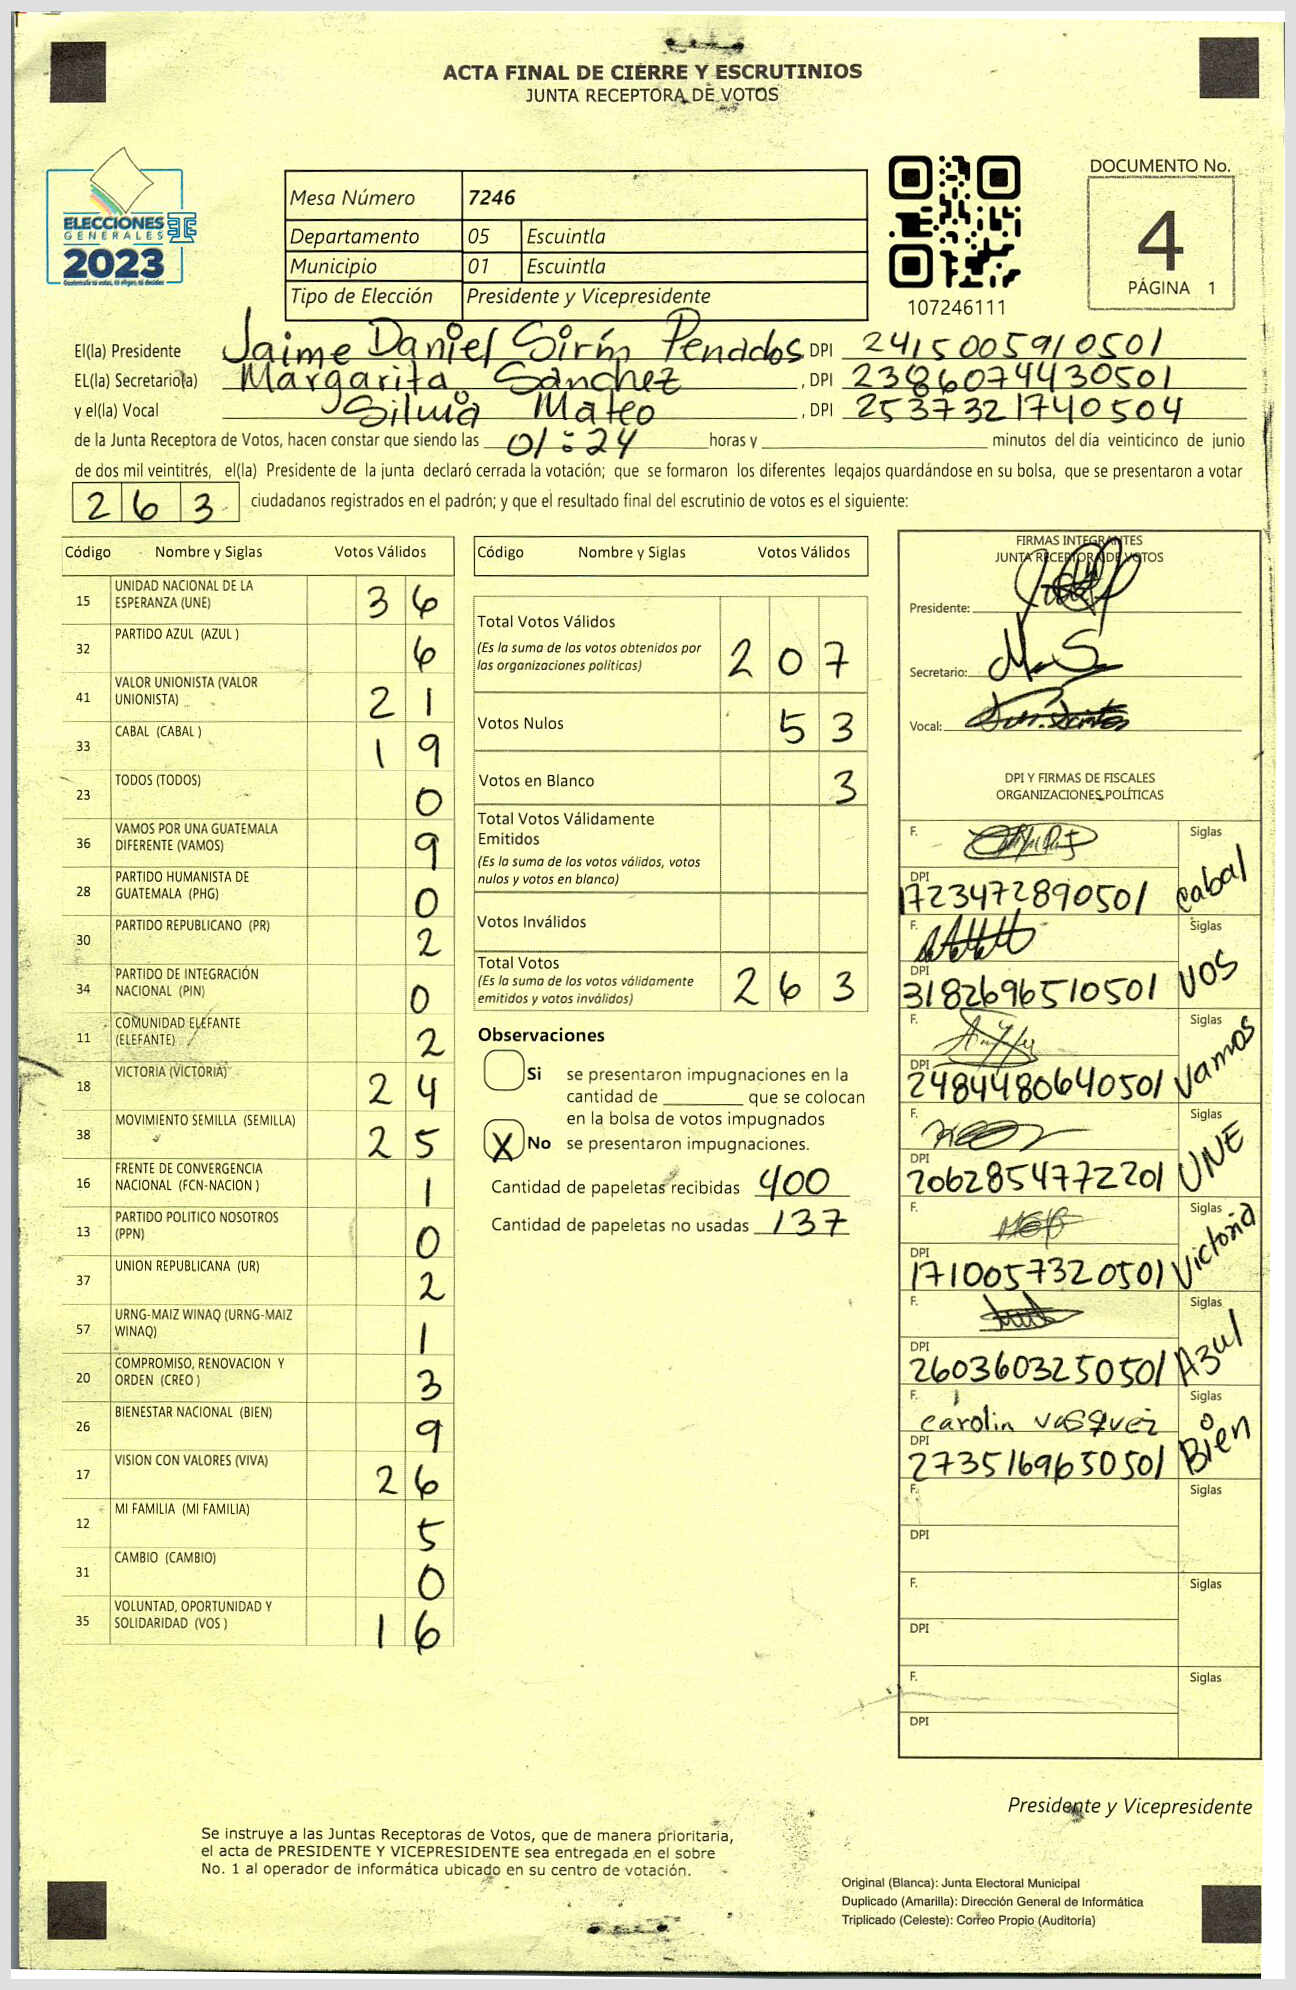 ACTA FINAL DE CIERRE Y ESCRUTINIOS
JUNTA RECEPTORA DE VOTOS
ELECCIONES
GENERALES
2023
Mesa Número 7246
Departamento 05 Escuintla
Municipio 01 Escuintla
Tipo de Elección Presidente y Vicepresidente
107246111
DOCUMENTO No.
4
PÁGINA 1
El(la) Presidente Jaime Daniel Sirín Penados DPI 2415005910501
EL(la) Secretario(a) Margarita Sánchez , DPI 2386074430501
y el(la) Vocal Silvia Mateo , DPI 2537321740504
de la Junta Receptora de Votos, hacen constar que siendo las 01:24 horas y minutos del día veinticinco de junio
de dos mil veintitrés, el(la) Presidente de la junta declaró cerrada la votación; que se formaron los diferentes legajos guardándose en su bolsa, que se presentaron a votar
263 ciudadanos registrados en el padrón; y que el resultado final del escrutinio de votos es el siguiente:
Código Nombre y Siglas Votos Válidos
15 UNIDAD NACIONAL DE LA ESPERANZA (UNE) 36
32 PARTIDO AZUL (AZUL ) 6
41 VALOR UNIONISTA (VALOR UNIONISTA) 21
33 CABAL (CABAL ) 19
23 TODOS (TODOS) 0
36 VAMOS POR UNA GUATEMALA DIFERENTE (VAMOS) 9
28 PARTIDO HUMANISTA DE GUATEMALA (PHG) 0
30 PARTIDO REPUBLICANO (PR) 2
34 PARTIDO DE INTEGRACIÓN NACIONAL (PIN) 0
11 COMUNIDAD ELEFANTE (ELEFANTE) 2
18 VICTORIA (VICTORIA) 24
38 MOVIMIENTO SEMILLA (SEMILLA) 25
16 FRENTE DE CONVERGENCIA NACIONAL (FCN-NACION ) 1
13 PARTIDO POLITICO NOSOTROS (PPN) 0
37 UNION REPUBLICANA (UR) 2
57 URNG-MAIZ WINAQ (URNG-MAIZ WINAQ) 1
20 COMPROMISO, RENOVACION Y ORDEN (CREO ) 3
26 BIENESTAR NACIONAL (BIEN) 9
17 VISION CON VALORES (VIVA) 26
12 MI FAMILIA (MI FAMILIA) 5
31 CAMBIO (CAMBIO) 0
35 VOLUNTAD, OPORTUNIDAD Y SOLIDARIDAD (VOS ) 16
Código Nombre y Siglas Votos Válidos
Total Votos Válidos 207
(Es la suma de los votos obtenidos por
las organizaciones políticas)
Votos Nulos 53
Votos en Blanco 3
Total Votos Válidamente
Emitidos
(Es la suma de los votos válidos, votos
nulos y votos en blanco)
Votos Inválidos
Total Votos 263
(Es la suma de los votos válidamente
emitidos y votos inválidos)
Observaciones
Si se presentaron impugnaciones en la
cantidad de que se colocan
en la bolsa de votos impugnados
X No se presentaron impugnaciones.
Cantidad de papeletas recibidas 400
Cantidad de papeletas no usadas 137
FIRMAS INTEGRANTES
JUNTA RECEPTORA DE VOTOS
Presidente:
Secretario: M. S.
Vocal:
DPI Y FIRMAS DE FISCALES
ORGANIZACIONES POLÍTICAS
F. Siglas
DPI 1723472890501 Cabal
F. Siglas
DPI 3182696510501 VOS
F. Siglas
DPI 2484480640501 Vamos
F. Siglas
DPI 2062854772201 UNE
F. Siglas
DPI 1710057320501 Victoria
F. Siglas
DPI 2603603250501 Azul
F. carolin vasquez Siglas
DPI 2735169650501 Bien
F. Siglas
DPI
F. Siglas
DPI
F. Siglas
DPI
Presidente y Vicepresidente
Se instruye a las Juntas Receptoras de Votos, que de manera prioritaria,
el acta de PRESIDENTE Y VICEPRESIDENTE sea entregada en el sobre
No. 1 al operador de informática ubicado en su centro de votación.
Original (Blanca): Junta Electoral Municipal
Duplicado (Amarilla): Dirección General de Informática
Triplicado (Celeste): Correo Propio (Auditoría)